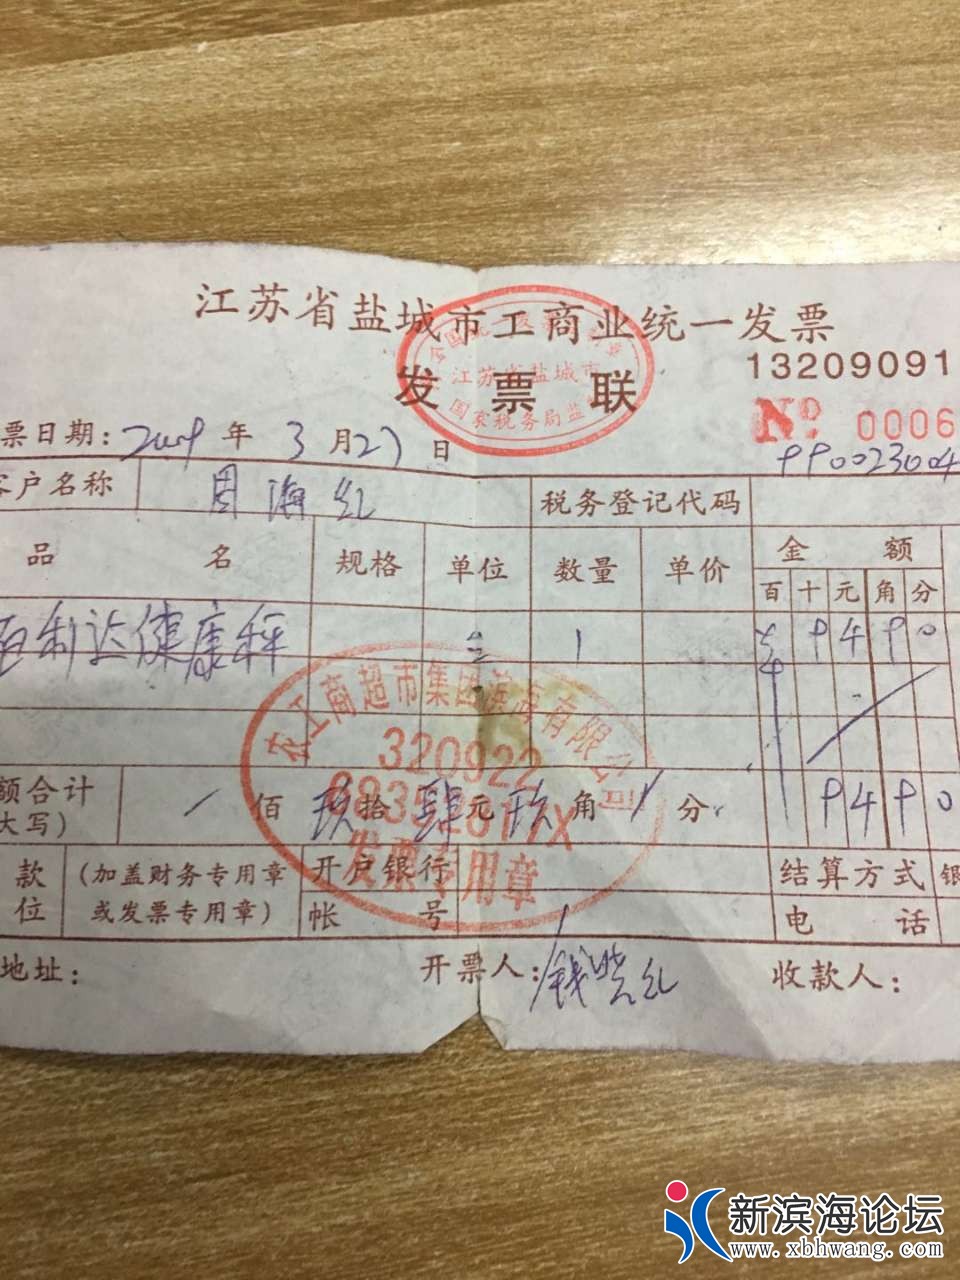 江苏省盐城市工商业统一发票
发票联
江苏省盐城市
国家税务局监
13209091
№ 0006
票日期: 2009 年 3 月 27 日
PP0023044
客户名称 周海红 税务登记代码
品名 规格 单位 数量 单价 金额
百 十 元 角 分
百利达健康秤 1 ¥ 9 4 9 0
农工商超市集团滨海有限公司
320922
发票专用章
额合计
大写) 佰 玖拾肆元玖角 分 9 4 9 0
款 (加盖财务专用章 开户银行 结算方式 银
位 或发票专用章) 帐号 电话
地址: 开票人: 钱晓红 收款人:
新滨海论坛
www.xbhwang.com